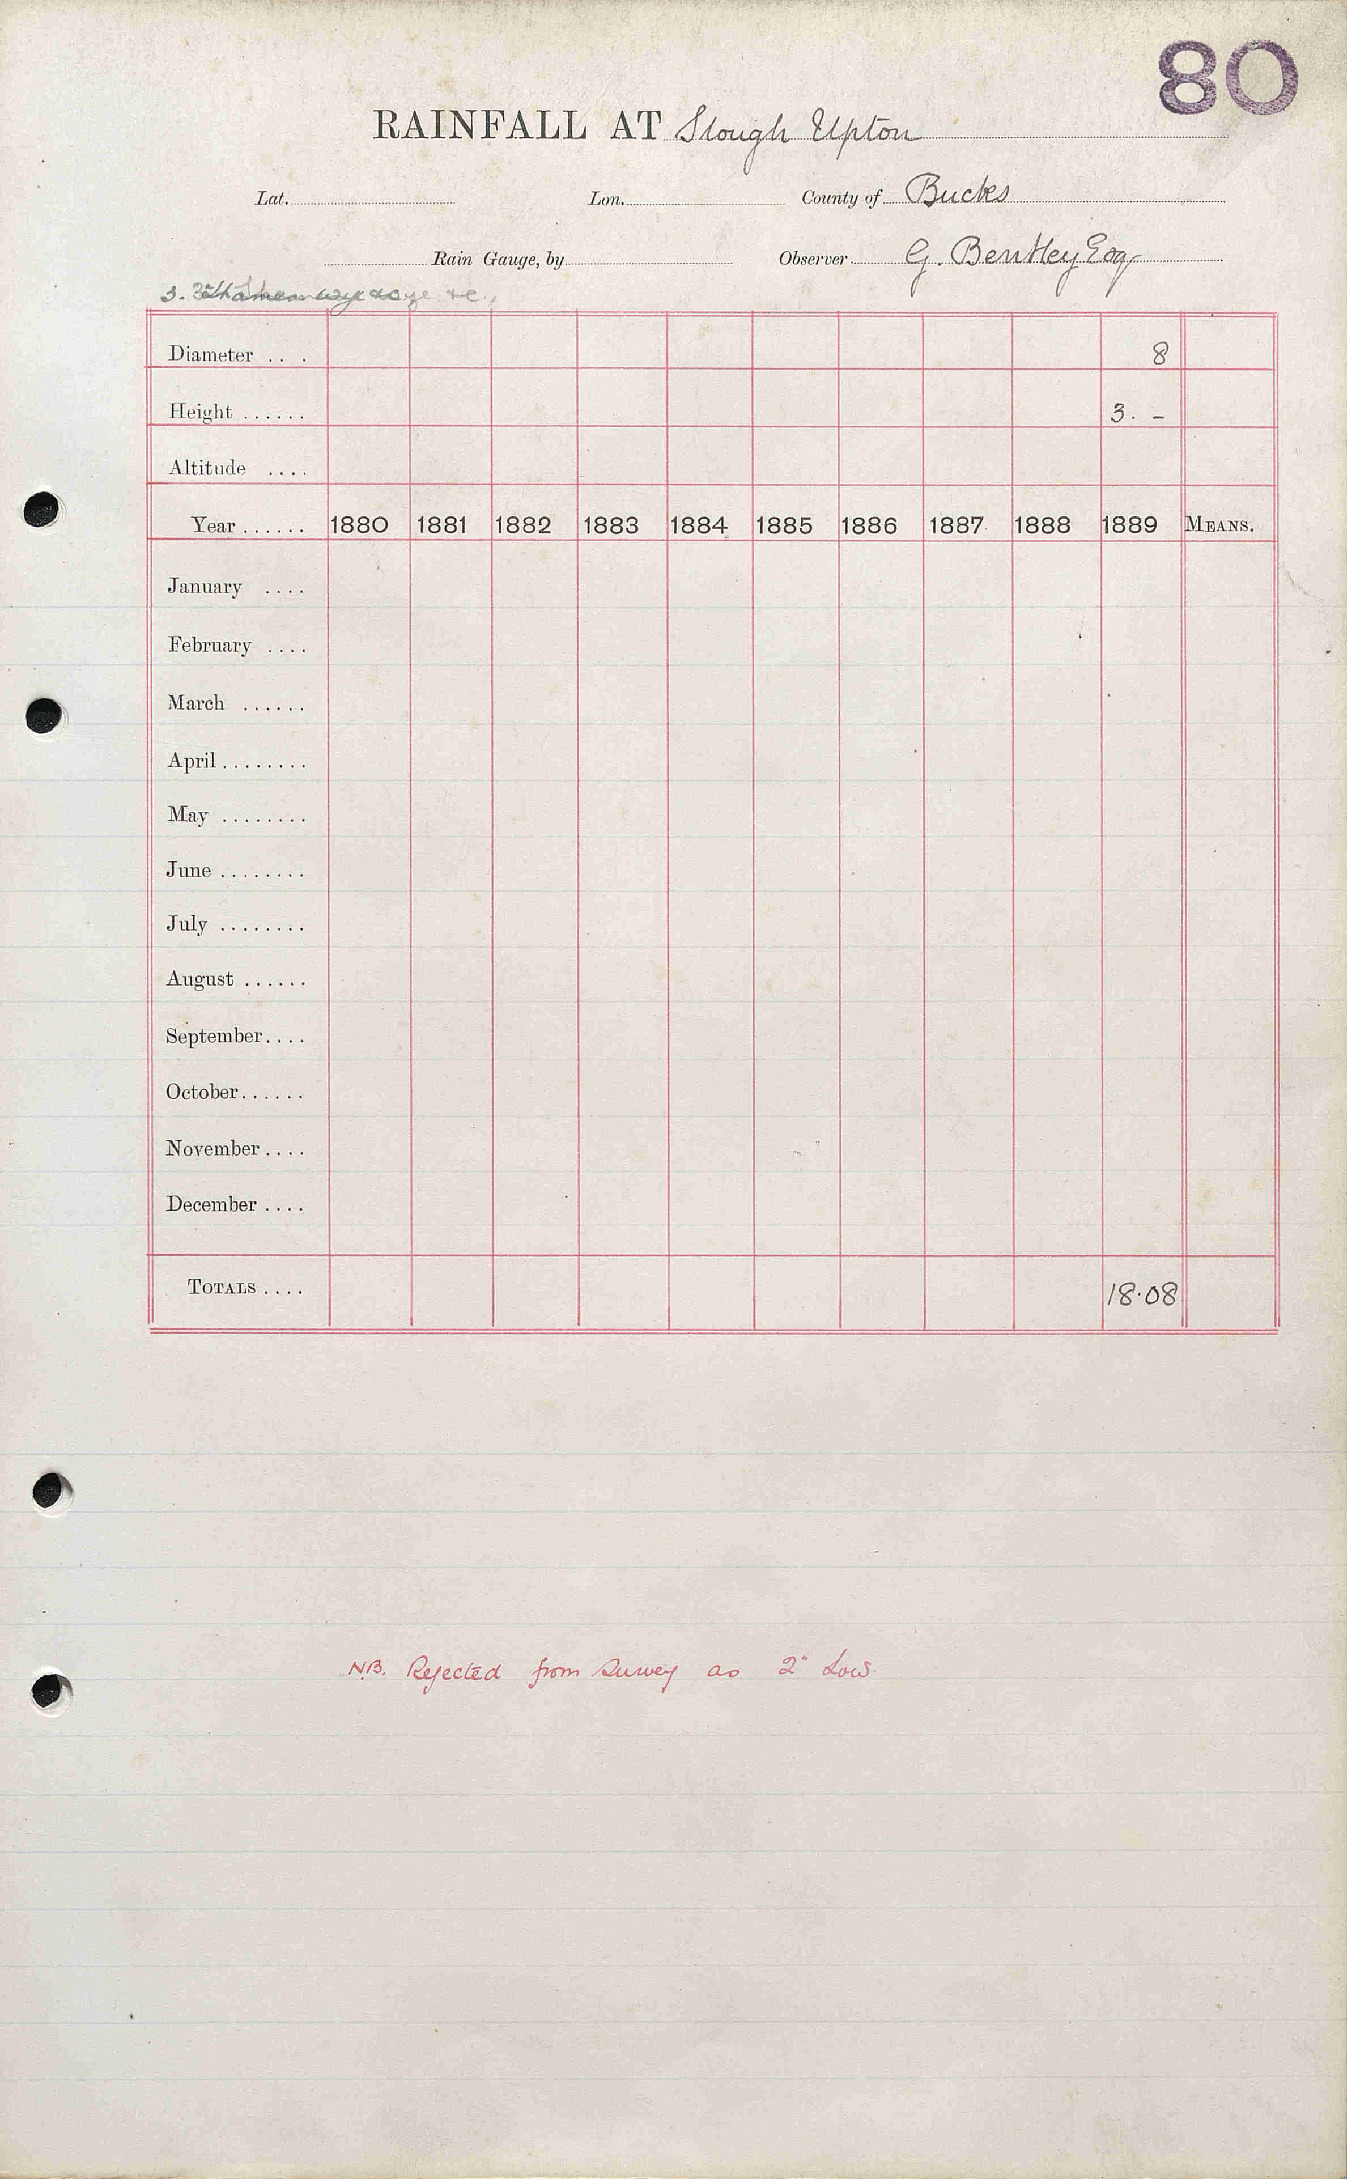 80
RAINFALL AT Slough Upton
Lat. Lon. County of Bucks
Rain Gauge, by Observer G. Bentley Esq
Diameter . . . 8
Height ...... 3. –
Altitude ....
Year ...... 1880 1881 1882 1883 1884 1885 1886 1887 1888 1889 MEANS.
January ....
February ....
March ......
April ........
May ........
June ........
July ........
August ......
September....
October......
November....
December ....
TOTALS .... 18.08
NB. Rejected from Survey as 2" Low.